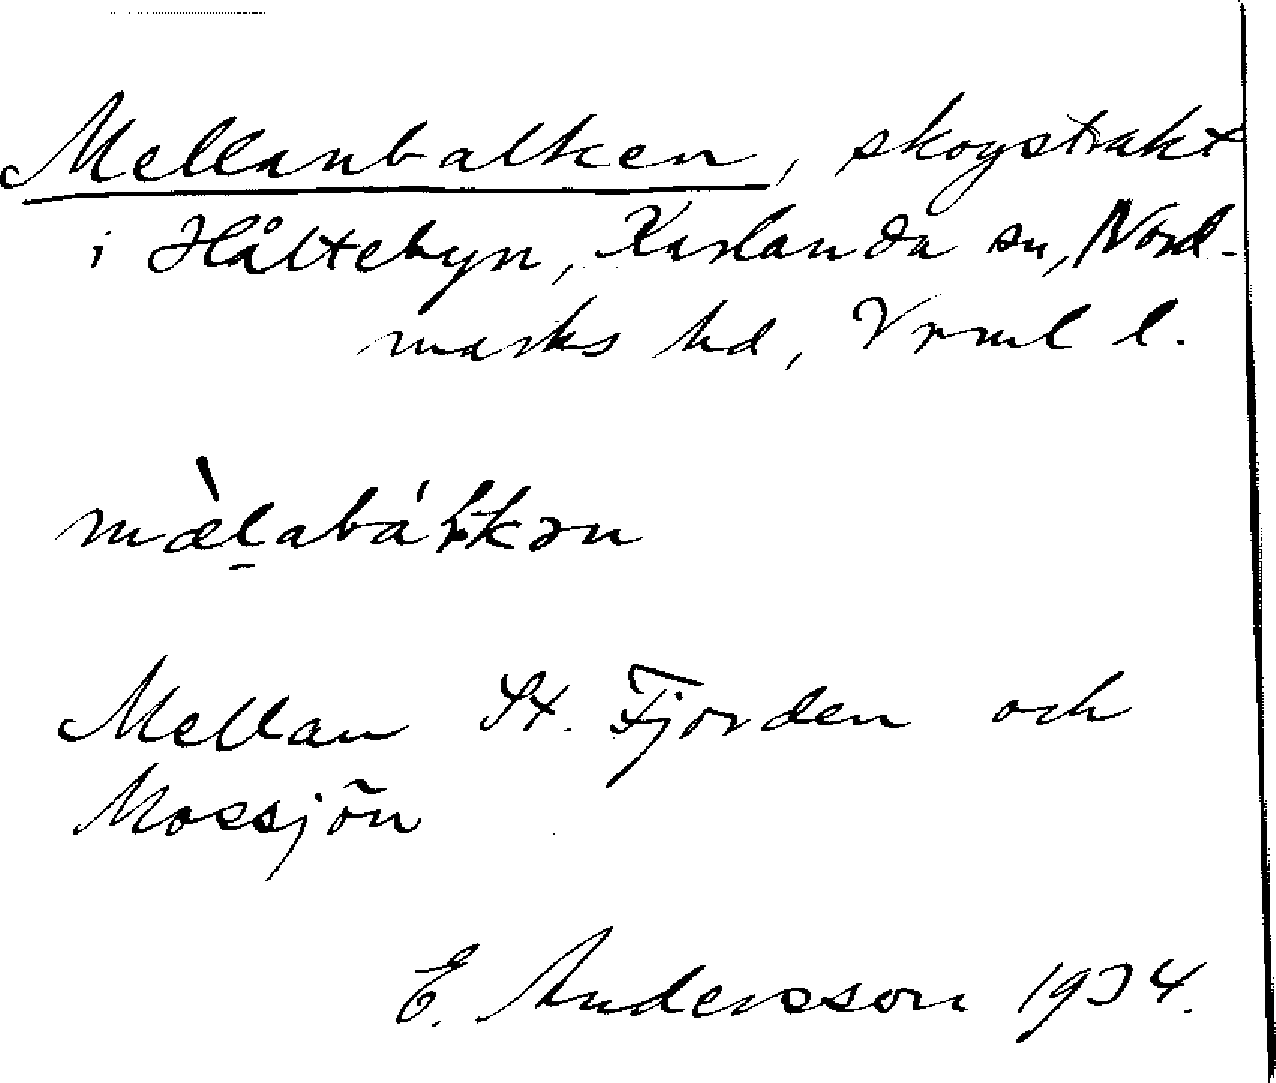 Mellanbalken, skogstrakt
i Håltebyn, Karlanda sn, Nord-
marks hd, Vrml l.
Mellan St. Fjorden och
Mossjön
E. Andersson 1934.